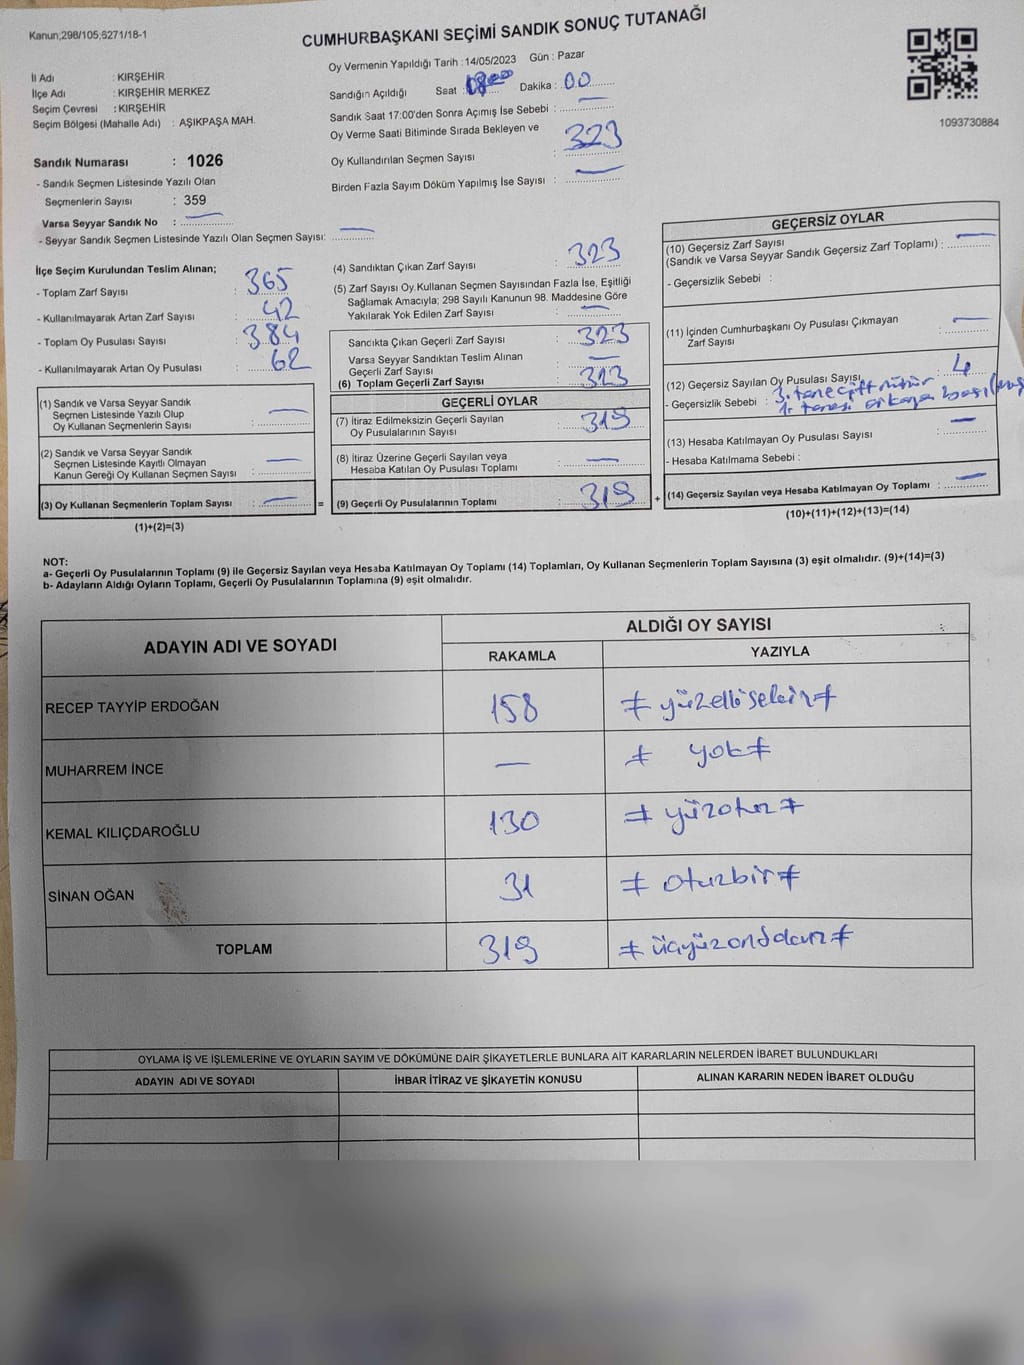 Kanun;298/105,6271/18-1
CUMHURBAŞKANI SEÇİMİ SANDIK SONUÇ TUTANAĞI
İl Adı : KIRŞEHİR
İlçe Adı : KIRŞEHİR MERKEZ
Seçim Çevresi : KIRŞEHİR
Seçim Bölgesi (Mahalle Adı) : AŞIKPAŞA MAH.
Oy Vermenin Yapıldığı Tarih : 14/05/2023 Gün : Pazar
Sandığın Açıldığı Saat : Dakika : 00
Sandık Saat 17:00'den Sonra Açımış İse Sebebi : —
Oy Verme Saati Bitiminde Sırada Bekleyen ve
Oy Kullandırılan Seçmen Sayısı : 323
Birden Fazla Sayım Döküm Yapılmış İse Sayısı : —
1093730884
Sandık Numarası : 1026
- Sandık Seçmen Listesinde Yazılı Olan
Seçmenlerin Sayısı : 359
Varsa Seyyar Sandık No : —
- Seyyar Sandık Seçmen Listesinde Yazılı Olan Seçmen Sayısı: —
İlçe Seçim Kurulundan Teslim Alınan;
- Toplam Zarf Sayısı : 365
- Kullanılmayarak Artan Zarf Sayısı : 42
- Toplam Oy Pusulası Sayısı : 384
- Kullanılmayarak Artan Oy Pusulası : 62
(1) Sandık ve Varsa Seyyar Sandık
Seçmen Listesinde Yazılı Olup
Oy Kullanan Seçmenlerin Sayısı : —
(2) Sandık ve Varsa Seyyar Sandık
Seçmen Listesinde Kayıtlı Olmayan
Kanun Gereği Oy Kullanan Seçmen Sayısı : —
(3) Oy Kullanan Seçmenlerin Toplam Sayısı : — =
(1)+(2)=(3)
(4) Sandıktan Çıkan Zarf Sayısı : 323
(5) Zarf Sayısı Oy Kullanan Seçmen Sayısından Fazla İse, Eşitliği
Sağlamak Amacıyla; 298 Sayılı Kanunun 98. Maddesine Göre
Yakılarak Yok Edilen Zarf Sayısı : —
Sandıkta Çıkan Geçerli Zarf Sayısı : 323
Varsa Seyyar Sandıktan Teslim Alınan
Geçerli Zarf Sayısı : —
(6) Toplam Geçerli Zarf Sayısı : 323
GEÇERLİ OYLAR
(7) İtiraz Edilmeksizin Geçerli Sayılan
Oy Pusulalarının Sayısı : 319
(8) İtiraz Üzerine Geçerli Sayılan veya
Hesaba Katılan Oy Pusulası Toplamı : —
(9) Geçerli Oy Pusulalarının Toplamı : 319 +
GEÇERSİZ OYLAR
(10) Geçersiz Zarf Sayısı
(Sandık ve Varsa Seyyar Sandık Geçersiz Zarf Toplamı) : —
- Geçersizlik Sebebi :
(11) İçinden Cumhurbaşkanı Oy Pusulası Çıkmayan
Zarf Sayısı : —
(12) Geçersiz Sayılan Oy Pusulası Sayısı : 4
- Geçersizlik Sebebi : 3. tane çift mühür
1. tanesi arkaya basılmış
(13) Hesaba Katılmayan Oy Pusulası Sayısı —
- Hesaba Katılmama Sebebi :
(14) Geçersiz Sayılan veya Hesaba Katılmayan Oy Toplamı : —
(10)+(11)+(12)+(13)=(14)
NOT:
a- Geçerli Oy Pusulalarının Toplamı (9) ile Geçersiz Sayılan veya Hesaba Katılmayan Oy Toplamı (14) Toplamları, Oy Kullanan Seçmenlerin Toplam Sayısına (3) eşit olmalıdır. (9)+(14)=(3)
b- Adayların Aldığı Oyların Toplamı, Geçerli Oy Pusulalarının Toplamına (9) eşit olmalıdır.
ADAYIN ADI VE SOYADI ALDIĞI OY SAYISI
RAKAMLA YAZIYLA
RECEP TAYYİP ERDOĞAN 158 # yüzellisekiz #
MUHARREM İNCE — # yok #
KEMAL KILIÇDAROĞLU 130 # yüzotuz #
SİNAN OĞAN 31 # otuzbir #
TOPLAM 319 # üçyüzondokuz #
OYLAMA İŞ VE İŞLEMLERİNE VE OYLARIN SAYIM VE DÖKÜMÜNE DAİR ŞİKAYETLERLE BUNLARA AİT KARARLARIN NELERDEN İBARET BULUNDUKLARI
ADAYIN ADI VE SOYADI İHBAR İTİRAZ VE ŞİKAYETİN KONUSU ALINAN KARARIN NEDEN İBARET OLDUĞU